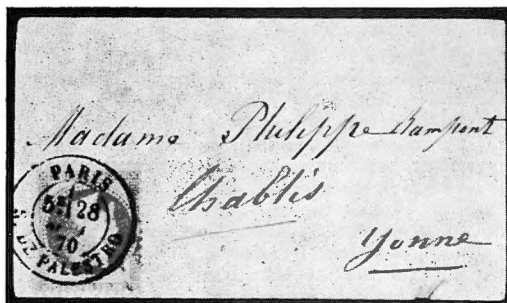 Madame Philippe Rampont
Chablis
Yonne
PARIS
5E 28
70
R. DE PALESTRO